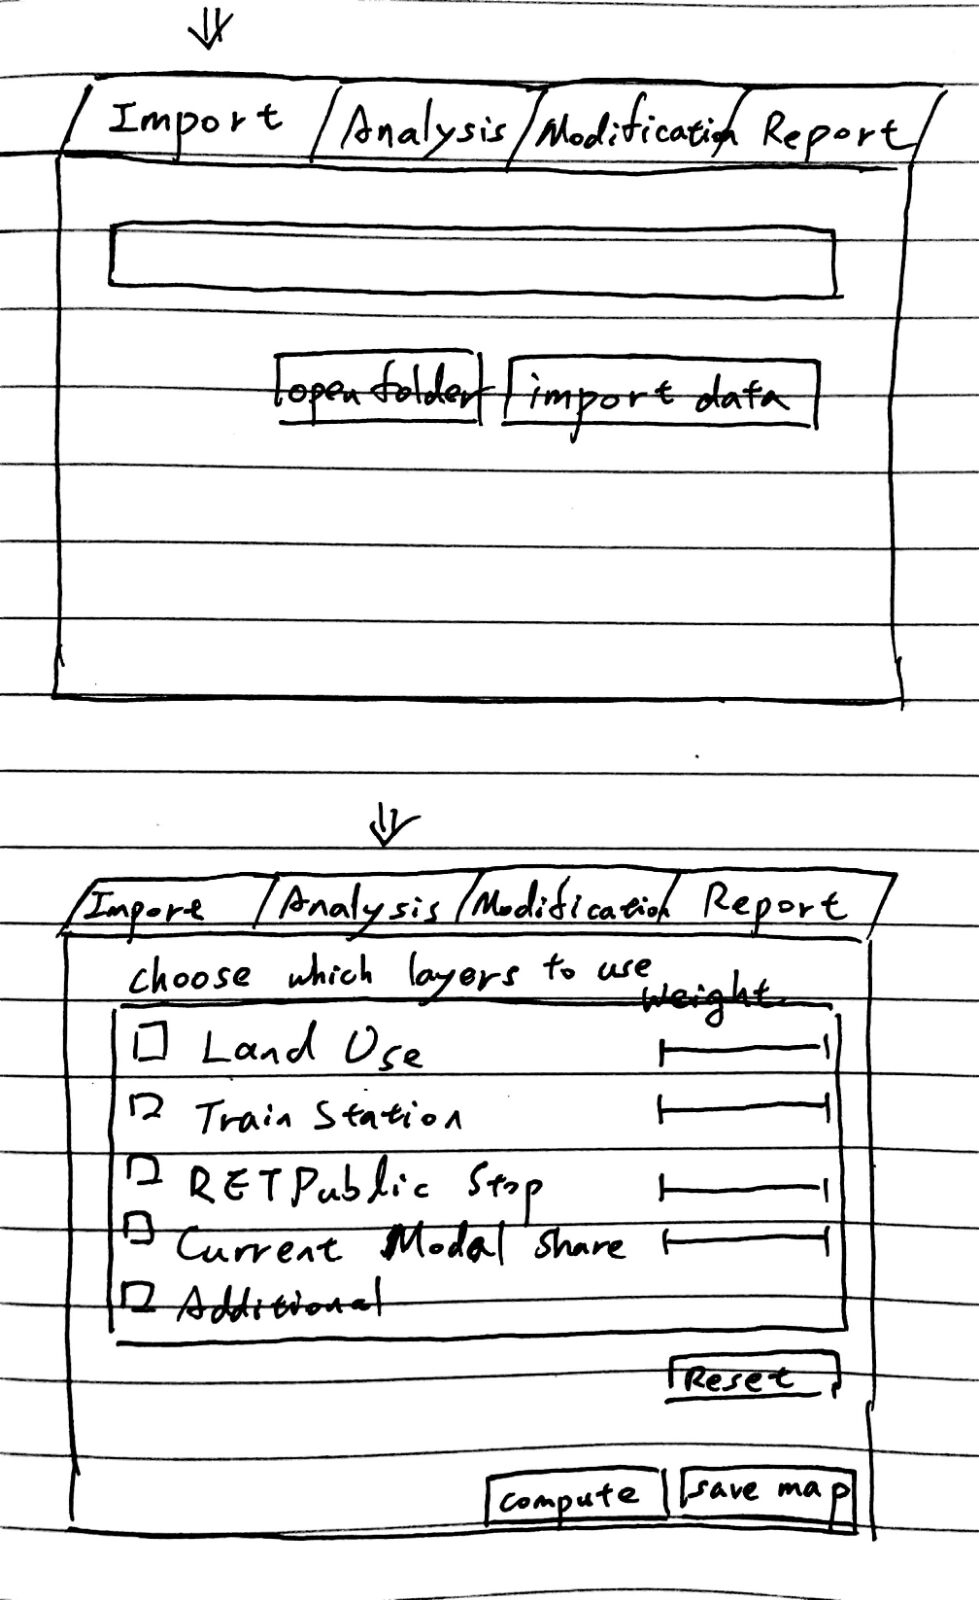 Import Analysis Modification Report
open folder import data
Impore Analysis Modification Report
choose which layers to use
weight
Land Use
Train Station
RET Public Stop
Current Modal share
Additional
Reset
compute save map